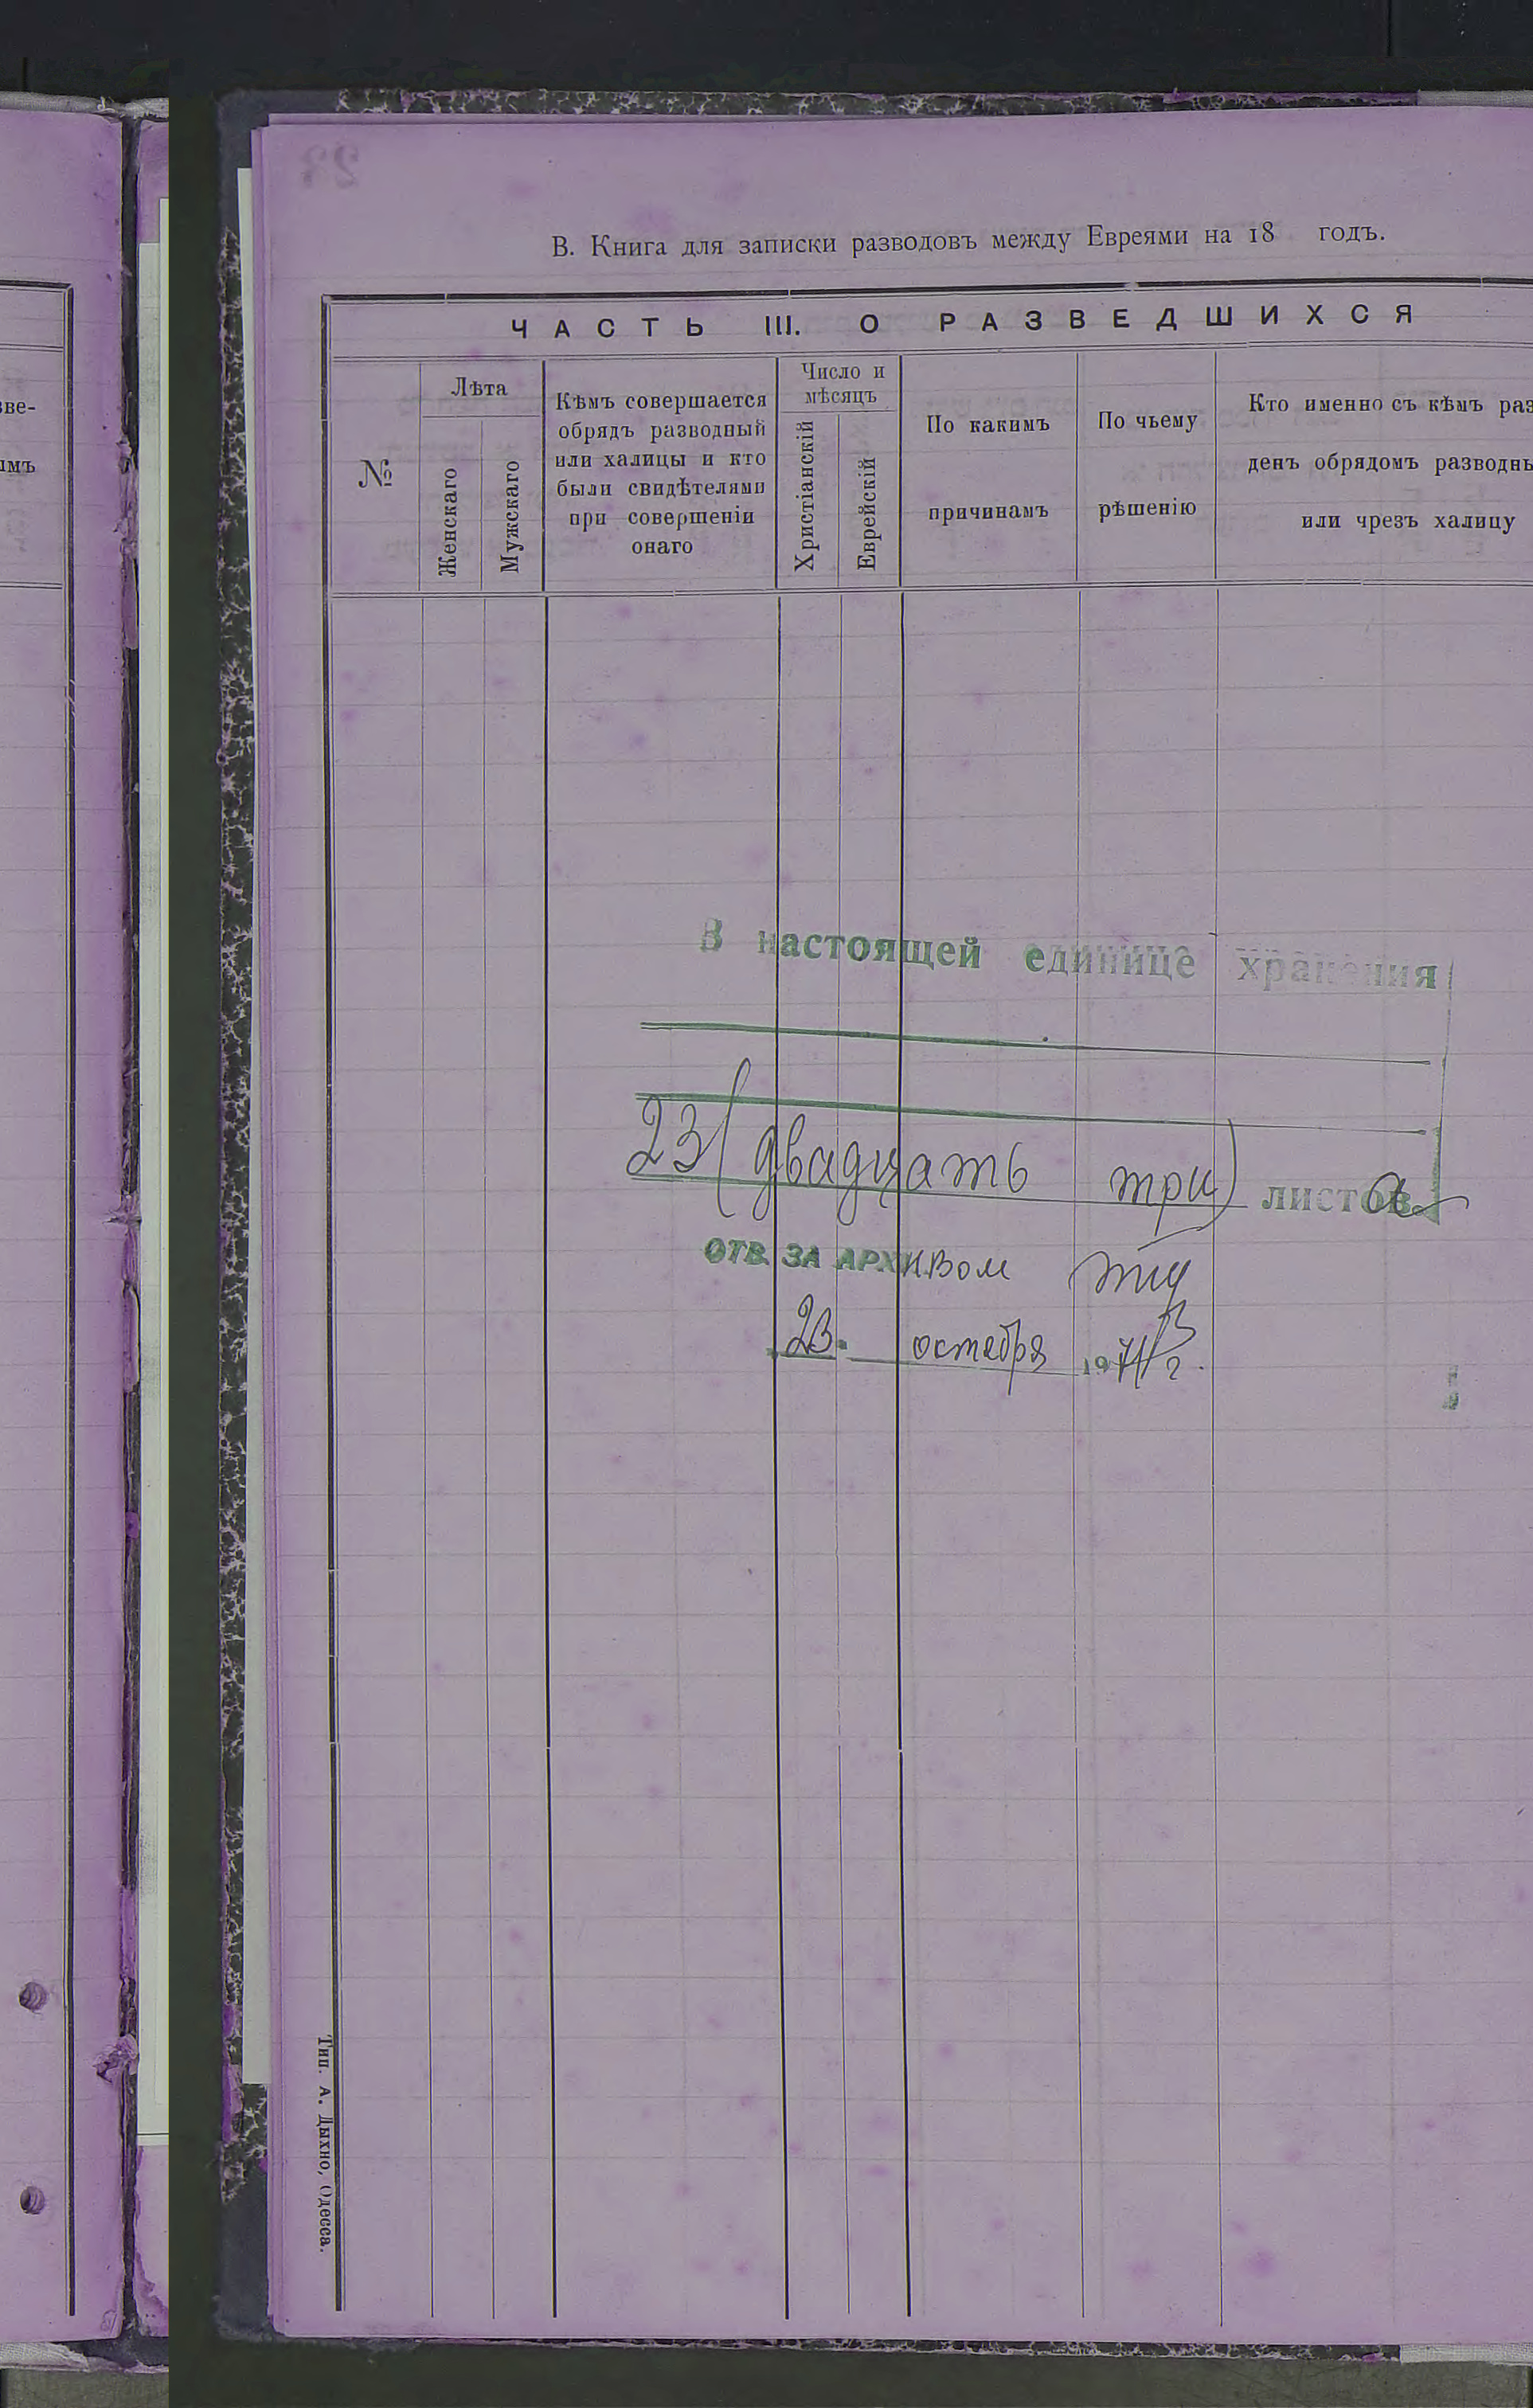 зве-
имъ
В. Книга для записки разводовъ между Евреями на 18 годъ.
ЧАСТЬ III. О РАЗВЕДШИХСЯ
№
Лѣта
Женскаго
Мужскаго
Кѣмъ совершается
обрядъ разводный
или халицы и кто
были свидѣтелями
при совершеніи
онаго
Число и
мѣсяцъ
Христіанскій
Еврейскій
По какимъ
причинамъ
По чьему
рѣшенію
Кто именно съ кѣмъ раз
денъ обрядомъ разводны
или чрезъ халицу
В настоящей единице хранения
23 (двадцать три) листов.
ОТВ. ЗА АРХИВом
23. октября 19 г.
Тип. А. Дыхно, Одесса.